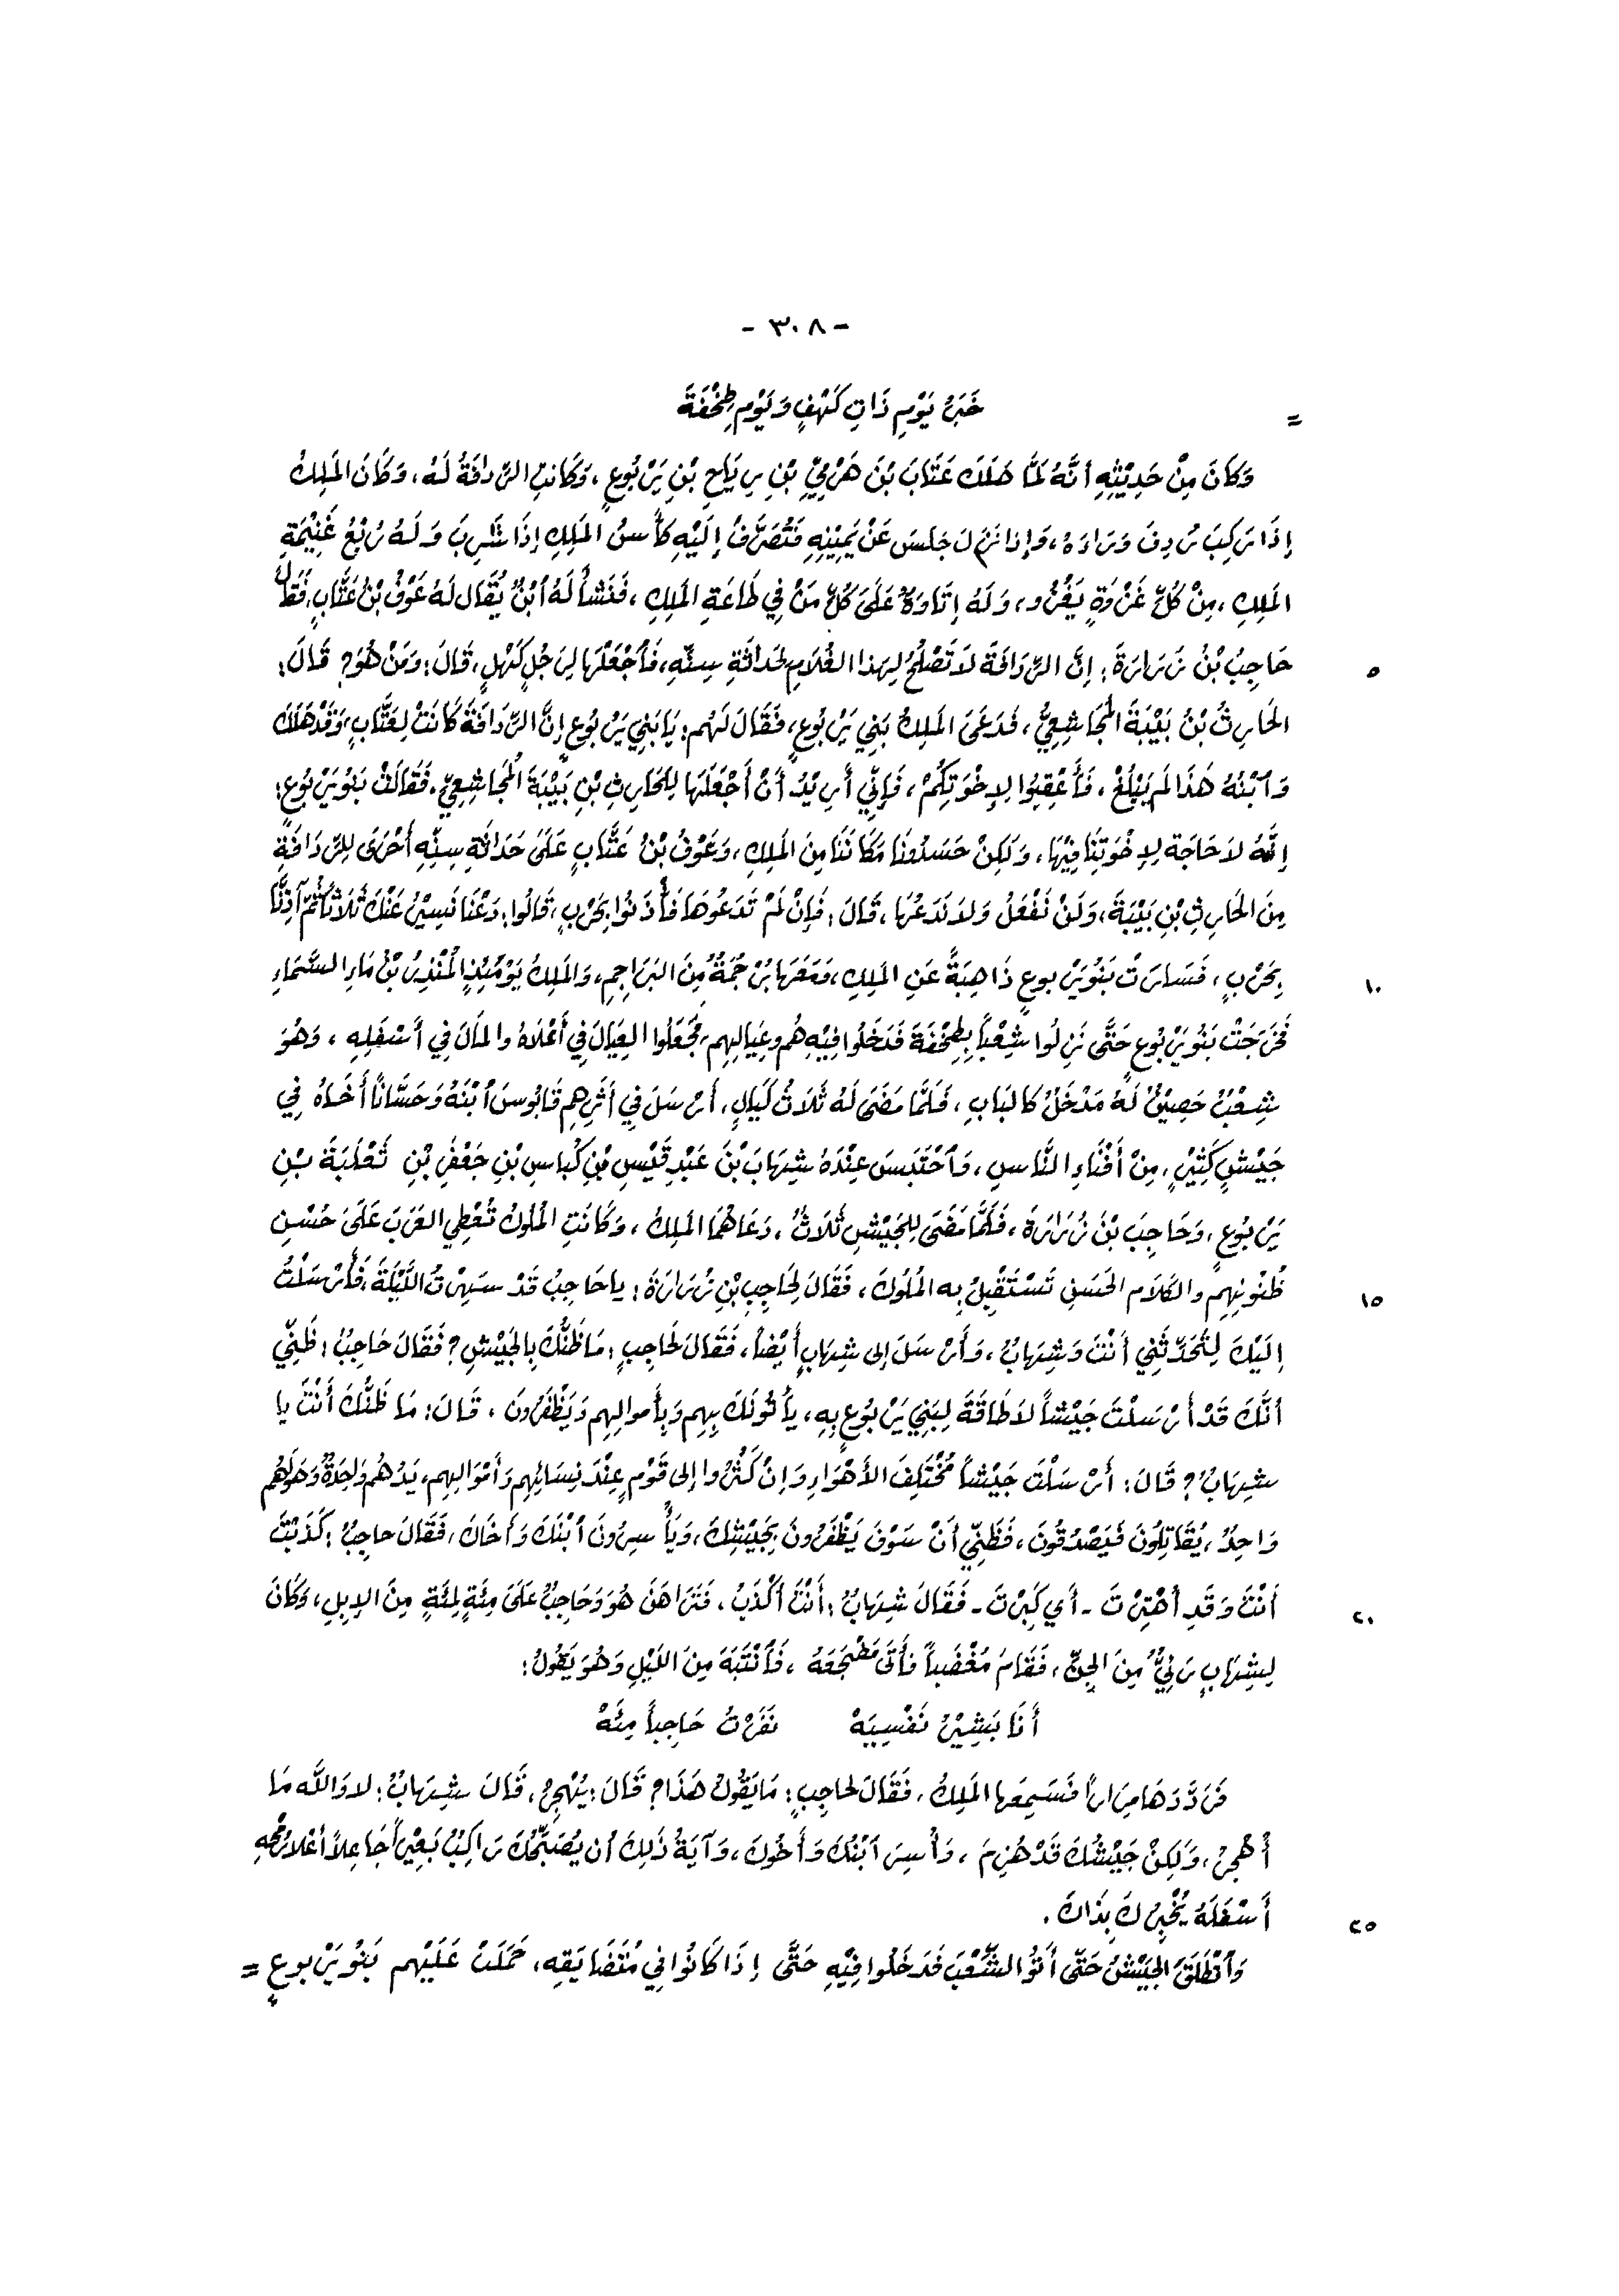 - ٣٠٨ -
= خَبَرُ يَوْمِ ذَاتِ كَهْفٍ وَيَوْمِ طِخْفَةَ
وَكَانَ مِنْ حَدِيْثِهِ أنَّهُ لَمَّا هَلَكَ عَتَّابَ بْنَ هَرْمِيِّ بْنِ رِيَاحِ بْنِ يَرْبُوعٍ، وَكَانتِ الرِّدافَةُ لَهُ، وَكَانَ المَلِكُ
إذَا رَكِبَ رَدِفَ وَرَادَهُ، وَإذا نَزَلَ جَلَسَ عَنْ يَمِيْنِهِ فَتُصَرَّفُ إلَيْهِ كَأسُ المَلِكِ إذَا شَرِبَ وَلَهُ رُبْعُ غَنِيْمَةِ
المَلِكِ، مِنْ كُلِّ غَزْوَةٍ يَغْزُو، وَلَهُ إتَاوَةٌ عَلَى كُلِّ مَنْ فِي طَاعَةِ المَلِكِ، فَنَشأ لَهُ ٱبْنٌ يُقَال لَهُ عَوْفُ بْنُ عَتَّابٍ، فَقَالَ
حَاجِبُ بْنُ زَرَارَةَ: إنَّ الرِّدَافَةَ لاَ تَصْلُحُ لِهذا الغُلاَمِ لِحَدَاثَةِ سِنِّهِ، فَٱجْعَلْهَا لِرَجُلٍ كَهْلٍ، قَالَ: وَمَنْ هُوَ؟ قَالَ: ٥
الحَارِثُ بْنُ بَيْبَةَ المُجَاشِعِيُّ، فَدَعَى المَلِكُ بَنِي يَرْبُوعٍ، فَقَالَ لَهُم: يَا بَنِي يَرْبُوعٍ إنَّ الرِّدَافَةَ كَانَتْ لِعَتَّابٍ، وَقَدْ هَلَكَ
وَٱبْنُهُ هَذَا لَم يَبْلُغْ، فَأَعْقِبُوا لِإخْوَتِكُمْ، فَإنِّي أُرِيْدُ أنْ أَجْعَلَهَا لِلحَارِثِ بْنِ بَيْبَةَ المُجَاشِعِيِّ، فَقَالَتْ بَنُو يَرْبُوعٍ:
إنَّهُ لاَ حَاجَةَ لِإخْوَتِنَا فِيْهَا، وَلَكِنْ حَسَدُونَا مَكَانَنَا مِنَ المَلِكِ، وَعَوْفُ بْنُ عَتَّابٍ عَلَى حَدَاثَةِ سِنِّهِ أحْرَى لِلرِّدَافَةِ
مِنَ الحَارِثِ بْنِ بَيْبَةَ، وَلَنْ نَفْعَلَ وَلاَ نَدَعُهَا، قَالَ: فَإنْ لَمْ تَدَعُوهَا فَأْذَنُوا بِحَرْبٍ، قَالُوا: دَعْنَا نَسِيْرُ عَنْكَ ثَلاَثاً ثُمَّ آذِنَّا
بِحَرْبٍ، فَسَارَتْ بَنُو يَرْبوعٍ ذَاهِبَةً عَنِ المَلِكِ، وَمَعَهَا بُرْجُمَةٌ مِنَ البَرَاجِمِ، وَالمَلِكُ يَوْمَئِذٍ المُنْذِرُ بْنُ مَاءِ السَّمَاءِ ١٠
فَخَرَجَتْ بَنُو يَرْبُوعٍ حَتَّى نَزِلُوا شِعْباً بِطِخْفَةَ فَدَخَلُوا فِيْهِ هُم وعِيَالِهِم، فَجَعَلُوا العِيَالَ فِي أَعْلاَهُ والمَالَ فِي أَسْفَلِهِ، وَهُوَ
شِعْبٌ حَصِيْنٌ لَهُ مَدْخَلٌ كالبَابِ، فَلَمَّا مَضَى لَهُ ثَلاَثُ لَيَالٍ، أَرْسَلَ فِي أثَرِهِم قَابُوسَ ٱبْنَهُ وَحَسَّاناً أَخَاهُ فِي
جَيْشٍ كَثِيْرٍ، مِنْ أَفْنَاءِ النَّاسِ، وَٱحْتَبَسَ عِنْدَهُ شِهَابَ بْنَ عَبْدِ قَيْسِ بْنِ كُبَاسِ بْنِ جَعْفَرِ بْنِ ثَعْلَبَةَ بْنِ
يَرْبُوعٍ، وَحَاجِبَ بْنَ زُرَارَةَ، فَلَمَّا مَضَى لِلجَيْشِ ثَلاَثٌ، دَعَاهُمَا المَلِكُ، وَكَانَتِ المُلُوكُ تُعْطِي العَرَبَ عَلَى حُسْنِ
ظُنُونِهِم والكَلاَمِ الحَسَنِ تَسْتَقْبِلُ بِه المُلُوكَ، فَقَالَ لِحَاجِبِ بْنِ زُرَارَةَ: يا حَاجِبُ قَدْ سَهِرْتُ اللَّيْلَةَ، فَأرْسَلْتُ ١٥
إلَيْكَ لِتُحَدِّثَنِي أنْتَ وَشِهَابٌ، وَأَرْسَلَ إلى شِهَابٍ أَيْضاً، فَقَالَ لِحَاجِبٍ: مَا ظَنُّكَ بِالجَيْشِ؟ فَقَالَ حَاجِبُ: ظَنِّي
أنَّكَ قَدْ أَرْسَلْتَ جَيْشاً لاَ طَاقَةَ لِبَنِي يَرْبُوعٍ بِهِ، يَأْتُونَكَ بِهِم وَبِأَموالِهِم وَيَظْفَرُونَ، قَالَ: مَا ظَنُّكَ أَنْتَ يا
شِهَابُ؟ قَالَ: أرْسَلْتَ جَيْشاً مُخْتَلِفَ الأهْوَاءِ وَإنْ كَثُرُوا إلى قَوْمٍ عِنْدَ نِسَائِهِم وَأَمْوَالِهِم، يَدُهُم وَاحِدَةٌ وَهَوَاهُم
وَاحِدٌ، يُقَاتِلُونَ فَيَصْدُقُونَ، فَظَنِّي أَنْ سَوْفَ يَظْفَرُونَ بِجَيْشِكَ، وَيَأْسِرُونَ ٱبْنَكَ وَأخَاكَ، فَقَالَ حاجِبُ: كَذَبْتَ
أنْتَ وَقَدِ أُهْتِرْتَ - أَي كَبِرْتَ - فَقَالَ شِهَابٌ: أَنْتَ أكْذَبُ، فَتَرَاهَنَ هُوَ وَحَاجِبُ عَلَى مِئَةٍ لِمِئَةٍ مِنَ الإبِلِ، وَكَانَ ٢٠
لِشِهَابٍ رَئِيٌّ مِنَ الجِنِّ، فَقَامَ مُغْضَباً فأَتَى مَضْجَعَهُ، فَٱنْتَبَهَ مِنَ اللَيْلِ وَهُوَ يَقُولُ:
أَنَا بَشِيْرُ نَفْسِيَهْ نَفَرْتُ حَاجِباً مِئَهْ
فَرَدَّدَهَا مِرَاراً فَسَمِعَها المَلِكُ، فَقَالَ لحاجِبٍ: مَا يَقُولُ هَذَا؟ قَالَ: يُهْجِرُ، قَالَ شِهَابٌ: لا وَاللَّه مَا
أُهْجِرُ، وَلَكِنْ جَيْشُكَ قَدْ هُزِمَ، وَأُسِرَ ٱبْنُكَ وَأَخُوكَ، وَآيَةُ ذَلِكَ أن يُصَبِّحُكَ رَاكِبُ بَعِيْرٍ جَاعِلاً أعْلاَ رُمْحِهِ
أَسْفَلَهُ يُخْبِرُكَ بِذَاكَ. ٢٥
وَٱنْطَلَقَ الجَيْشُ حَتّى أَتَوُ الشِّعْبَ فَدَخَلُوا فِيْهِ حَتَّى إذَا كَانُوا فِي مُتَضَايَقِهِ، حَمَلَتْ عَلَيْهم بَنُو يَرْبوعٍ =